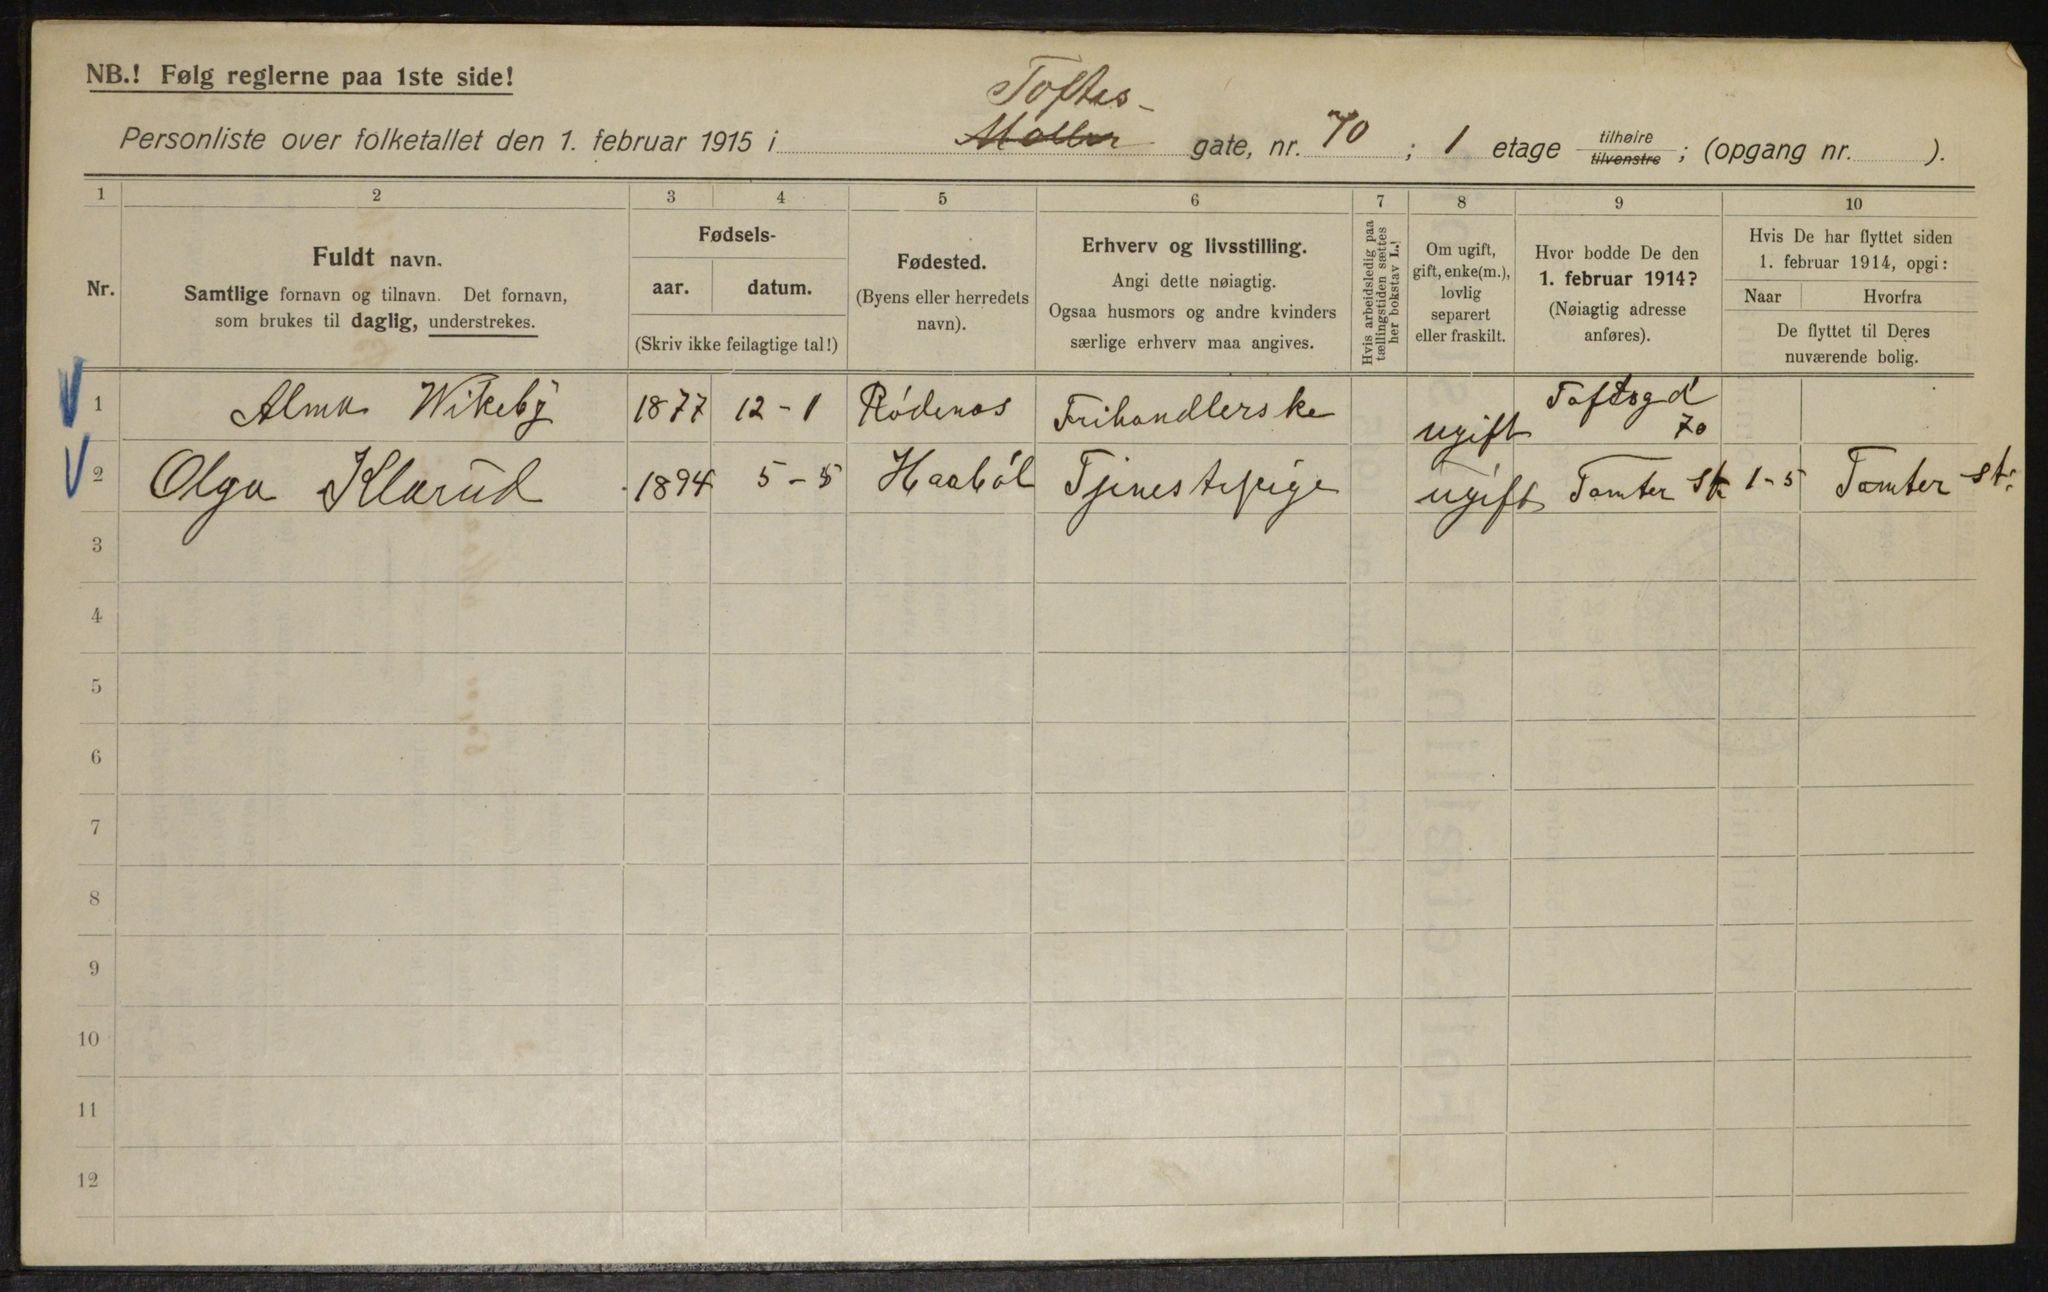 NB.! Følg reglerne paa 1ste side!
Toftes-
Personliste over folketallet den 1. februar 1915 i Møller gate, nr. 70 ; 1 etage tilhøire tilvenstre ; (opgang nr. ).
1 2 3 4 5 6 7 8 9 10
Nr.
Fuldt navn.
Samtlige fornavn og tilnavn. Det fornavn,
som brukes til daglig, understrekes.
Fødsels-
aar. datum.
(Skriv ikke feilagtige tal!)
Fødested.
(Byens eller herredets
navn).
Erhverv og livsstilling.
Angi dette nøiagtig.
Ogsaa husmors og andre kvinders
særlige erhverv maa angives.
Hvis arbeidsledig paa
tællingstiden sættes
her bokstav L.
Om ugift,
gift, enke(m.),
lovlig
separert
eller fraskilt.
Hvor bodde De den
1. februar 1914?
(Nøiagtig adresse
anføres).
Hvis De har flyttet siden
1. februar 1914, opgi:
Naar Hvorfra
De flyttet til Deres
nuværende bolig.
1 Alma Wikeby 1877 12-1 Rödenes Frihandlerske ugift Toftsgd 70
2 Olga Klarud 1894 5-5 Haaböl Tjenestepige ugift Tomter St 1-5 Tomter st.
3
4
5
6
7
8
9
10
11
12